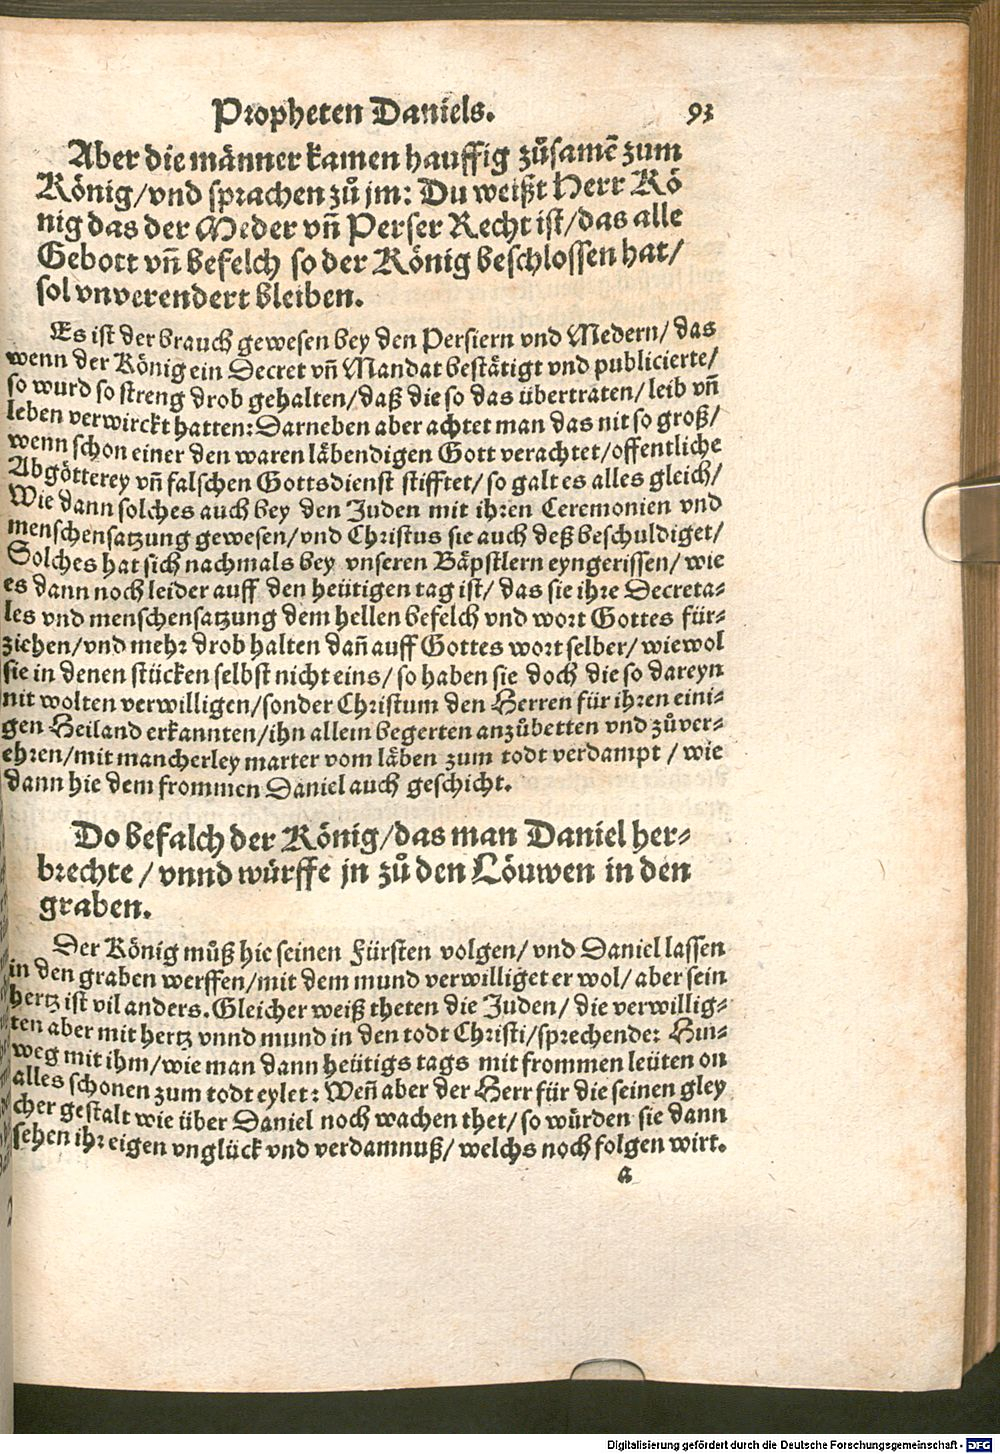 Propheten Daniels. 93
Aber die männer kamen hauffig zůsamē zum
König/vnd sprachen zů jm: Du weißt Herr Kö
nig das der Meder vn̄ Perser Recht ist/das alle
Gebott vn̄ befelch so der König beschlossen hat/
sol vnverendert bleiben.
Es ist der brauch gewesen bey den Persiern vnd Medern/ das
wenn der König ein Decret vn̄ Mandat bestätigt vnd publicierte/
so wurd so streng drob gehalten/daß die so das übertraten/leib vn̄
leben verwirckt hatten: Darneben aber achtet man das nit so groß/
wenn schon einer den waren läbendigen Gott verachtet/offentliche
Abgötterey vn̄ falschen Gottsdienst stifftet/so galt es alles gleich/
Wie dann solches auch bey den Juden mit ihren Ceremonien vnd
menschensatzung gewesen/vnd Christus sie auch deß beschuldiget/
Solches hat sich nachmals bey vnseren Bäpstlern eyngerissen/ wie
es dann noch leider auff den heütigen tag ist/ das sie ihre Decreta-
les vnd menschensatzung dem hellen befelch vnd wort Gottes für-
ziehen/vnd mehr drob halten dan̄ auff Gottes wort selber/ wiewol
sie in denen stücken selbst nicht eins/ so haben sie doch die so dareyn
nit wolten verwilligen/sonder Christum den Herren für ihren eini-
gen Heiland erkannten/ihn allein begerten anzůbetten vnd zůver-
ehren/mit mancherley marter vom läben zum todt verdampt / wie
dann hie dem frommen Daniel auch geschicht.
Do befalch der König/das man Daniel her-
brechte / vnnd würffe jn zů den Löuwen in den
graben.
Der König můß hie seinen Fürsten volgen/ vnd Daniel lassen
in den graben werffen/mit dem mund verwilliget er wol/ aber sein
hertz ist vil anders. Gleicher weiß theten die Juden/ die verwillig-
ten aber mit hertz vnnd mund in den todt Christi/sprechende: Hin-
weg mit ihm/wie man dann heütigs tags mit frommen leüten on
alles schonen zum todt eylet: Wen̄ aber der Herr für die seinen gley
cher gestalt wie über Daniel noch wachen thet/ so würden sie dann
sehen ihr eigen vnglück vnd verdamnuß/ welchs noch folgen wirt.
Digitalisierung gefördert durch die Deutsche Forschungsgemeinschaft - DFG